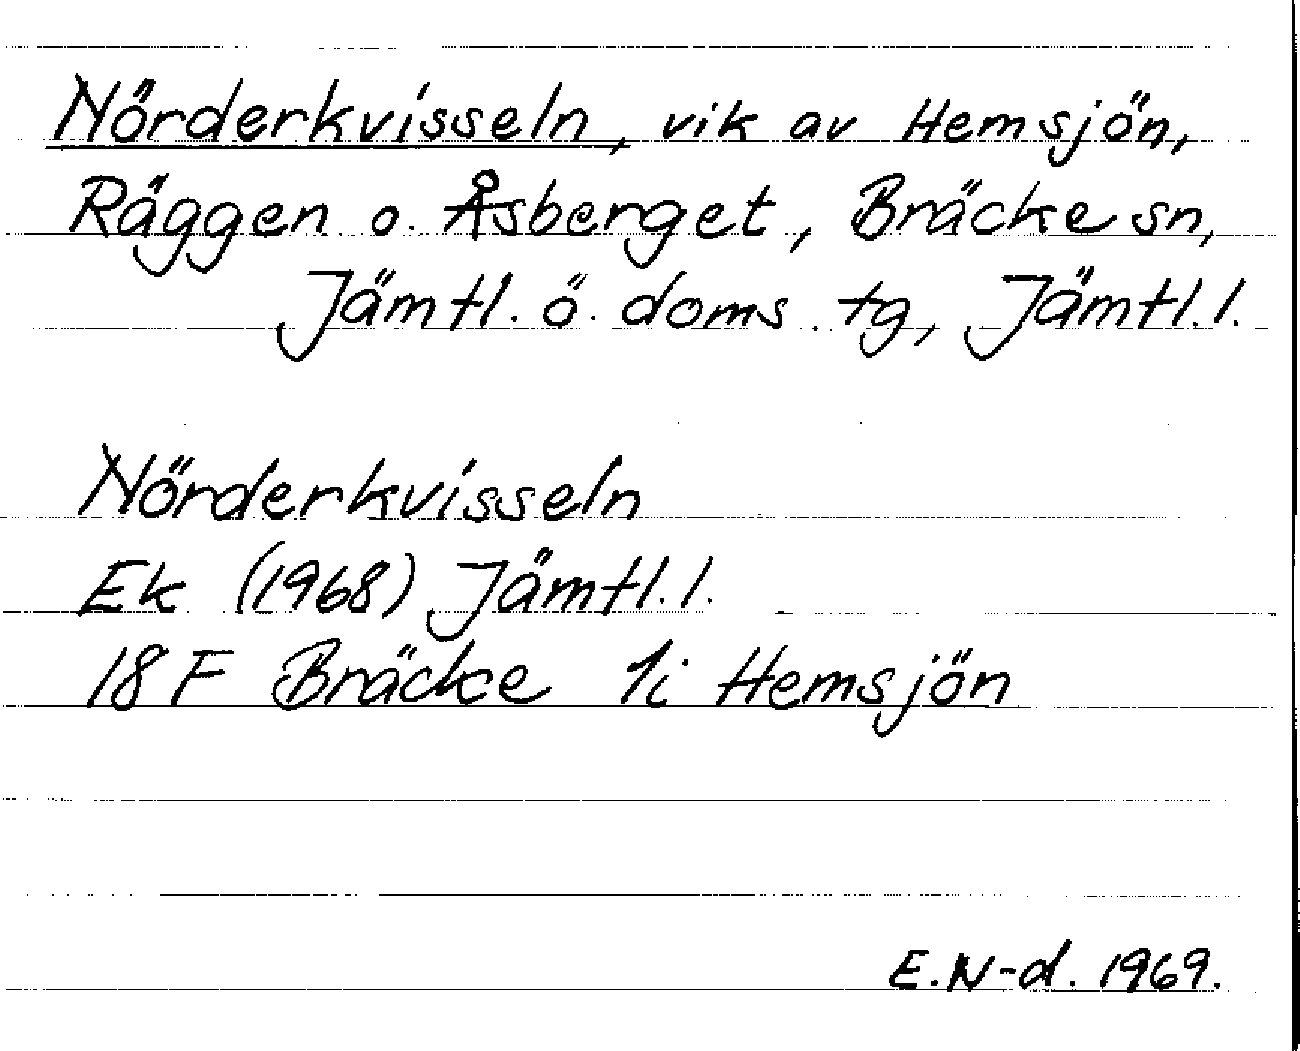 Nörderkvisseln, vik av Hemsjön,
Räggen o. Åsberget, Bräcke sn,
Jämtl. ö. doms. tg, Jämtl. l.
Nörderkvisseln
Ek (1968) Jämtl. l.
18 F Bräcke 1i Hemsjön
E. N-d. 1969.